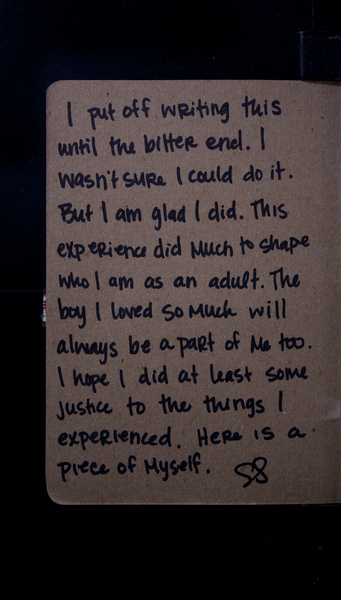 I put off writing this
until the bitter end. I
wasn't sure I could do it.
But I am glad I did. This
experience did much to shape
who I am as an adult. The
boy I loved so much will
always be a part of me too.
I hope I did at least some
justice to the things I
experienced. Here is a
piece of myself.